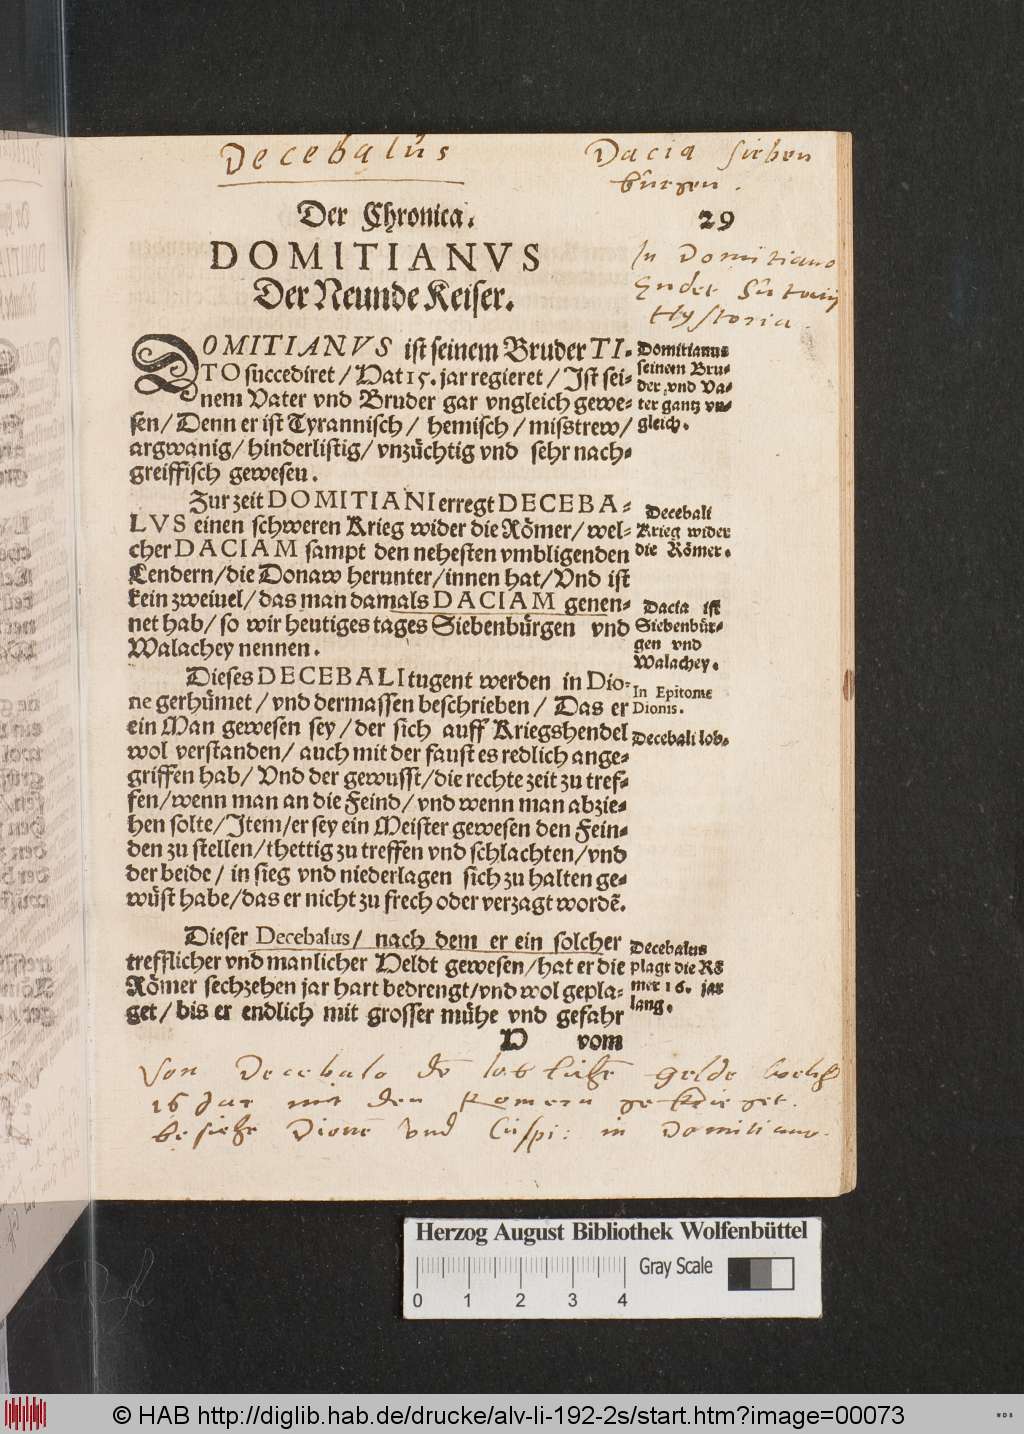 Decebalus
Dacia Sieben
bürgen.
Der Chronica.
29
DOMITIANVS
Der Neunde Keiser.
In Domitiano
Endet Sütonij
Hystoria.
DOMITIANVS ist seinem Bruder TI-
TO succediret / Hat 15. jar regieret / Ist sei-
nem Vater vnd Bruder gar vngleich gewe-
sen / Denn er ist Tyrannisch / hemisch / misstrew /
argwanig / hinderlistig / vnzüchtig vnd sehr nach-
greiffisch gewesen.
Domitianus
seinem Bru-
der, vnd Va-
ter gantz vn-
gleich.
Zur zeit DOMITIANI erregt DECEBA-
LVS einen schweren Krieg wider die Römer / wel-
cher DACIAM sampt den nehesten vmbligenden
Lendern / die Donaw herunter / innen hat / Vnd ist
kein zweiuel / das man damals DACIAM genen-
net hab / so wir heutiges tages Siebenbürgen vnd
Walachey nennen.
Decebali
Krieg wider
die Römer.
Dacia ist
Siebenbür-
gen vnd
Walachey.
Dieses DECEBALI tugent werden in Dio-
ne gerhümet / vnd dermassen beschrieben / Das er
ein Man gewesen sey / der sich auff Kriegshendel
wol verstanden / auch mit der faust es redlich ange-
griffen hab / Vnd der gewusst / die rechte zeit zu tref-
fen / wenn man an die Feind / vnd wenn man abzie-
hen solte / Item / er sey ein Meister gewesen den Fein-
den zu stellen / thettig zu treffen vnd schlachten / vnd
der beide / in sieg vnd niederlagen sich zu halten ge-
wüst habe / das er nicht zu frech oder verzagt wordẽ.
In Epitome
Dionis.
Decebali lob.
Dieser Decebalus / nach dem er ein solcher
trefflicher vnd manlicher Heldt gewesen / hat er die
Römer sechzehen jar hart bedrengt / vnd wol gepla-
get / bis er endlich mit grosser mühe vnd gefahr
Decebalus
plagt die Rö
mer 16. jar
lang.
H vom
Von Decebalo
16 Jar mit den Romern gekrieget.
besiehe Dione vnd Cuspi: in Domitiano.
Herzog August Bibliothek Wolfenbüttel
Gray Scale
0 1 2 3 4
© HAB http://diglib.hab.de/drucke/alv-li-192-2s/start.htm?image=00073